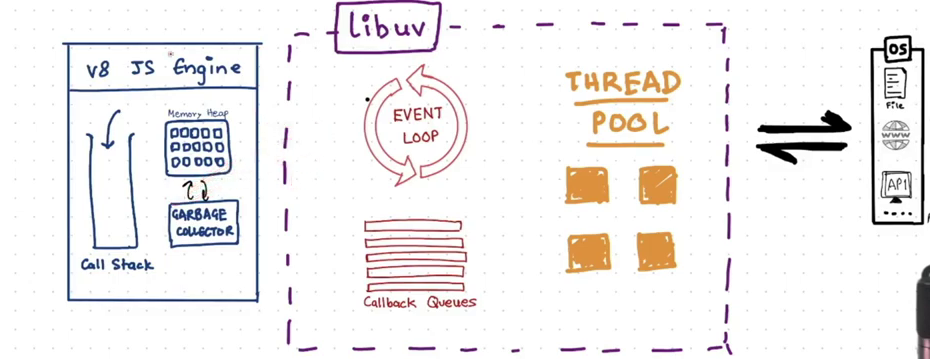 libuv
V8 JS Engine
Memory Heap
GARBAGE
COLLECTOR
Call Stack
EVENT
LOOP
Callback Queues
THREAD
POOL
OS
File
www
API